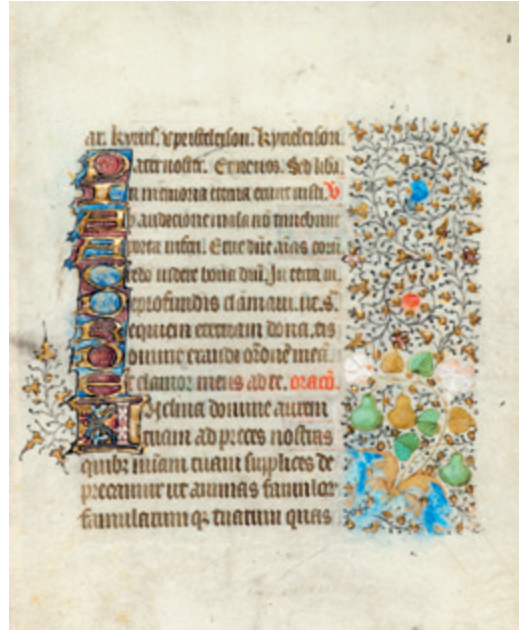 ar. kyriel. xpisteleison. kyrieleison.
Pater noster. Et ne nos. Sed libe
In memoria eterna erunt iusti. V
Ab audicione mala nō timebunt
A porta inferi. Erue dñe aīas eorū
Credo videre bona dñi. In terra vi.
De profundis clamaui.
Requiem eternam dona eis
Domine exaudi orōnē meā.
Et clamor meus ad te. oracō.
Inclina domine aurem
tuam ad preces nostras
quibꝫ miam tuam supplices de
precamur ut animas famulor
famularum qꝫ tuarum quas